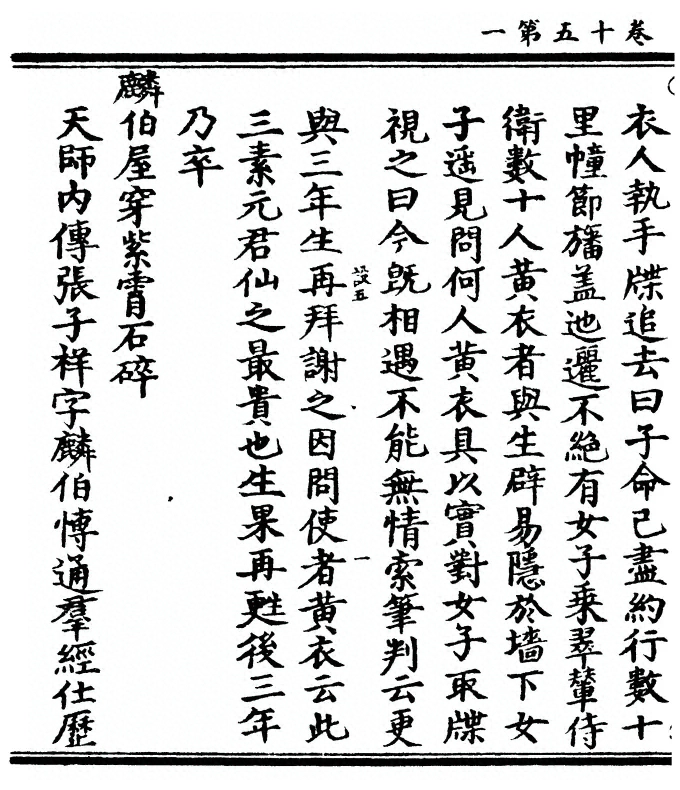 卷十五第一
衣人執手牒追去曰子命已盡約行數十
里幢節旛盖迆邐不絶有女子乘翠輦侍
衛數十人黄衣者與生辟易隱於墻下女
子遥見問何人黄衣具以實對女子取牒
視之曰今既相遇不能無情索筆判云更
與三年生再拜謝之因問使者黄衣云此
三素元君仙之最貴也生果再甦後三年
乃卒
麟伯屋穿紫霄石碎
天師内傳張子祥字麟伯愽通羣經仕歷